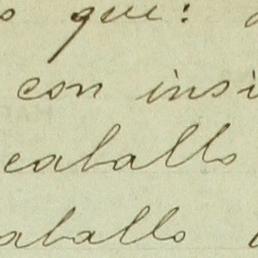 que:
con insi
caballo
aballo